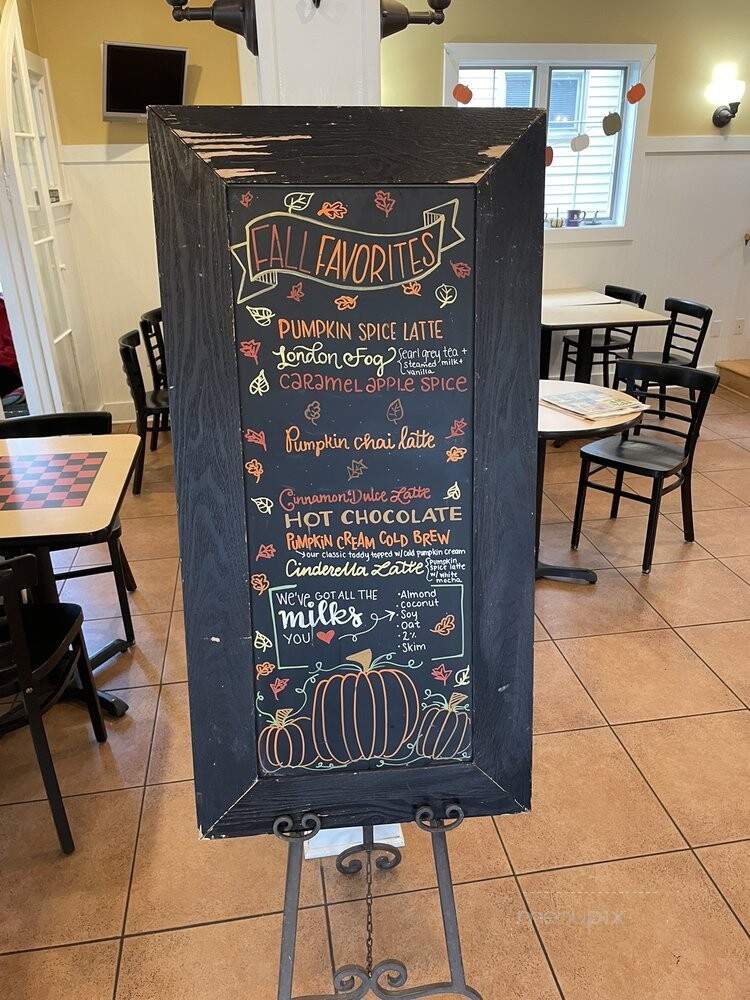 FALL FAVORITES
PUMPKIN SPICE LATTE
London Fog {earl grey tea +
steamed milk +
vanilla
caramel apple spice
Pumpkin chai latte
Cinnamon Dulce Latte
HOT CHOCOLATE
PUMPKIN CREAM COLD BREW
our classic toddy topped w/cold pumpkin cream
Cinderella Latte {pumpkin
spice latte
w/ white
mocha
WE'VE GOT ALL THE
milks
YOU ♥
· Almond
· coconut
· Soy
· Oat
· 2%
· Skim
menupix